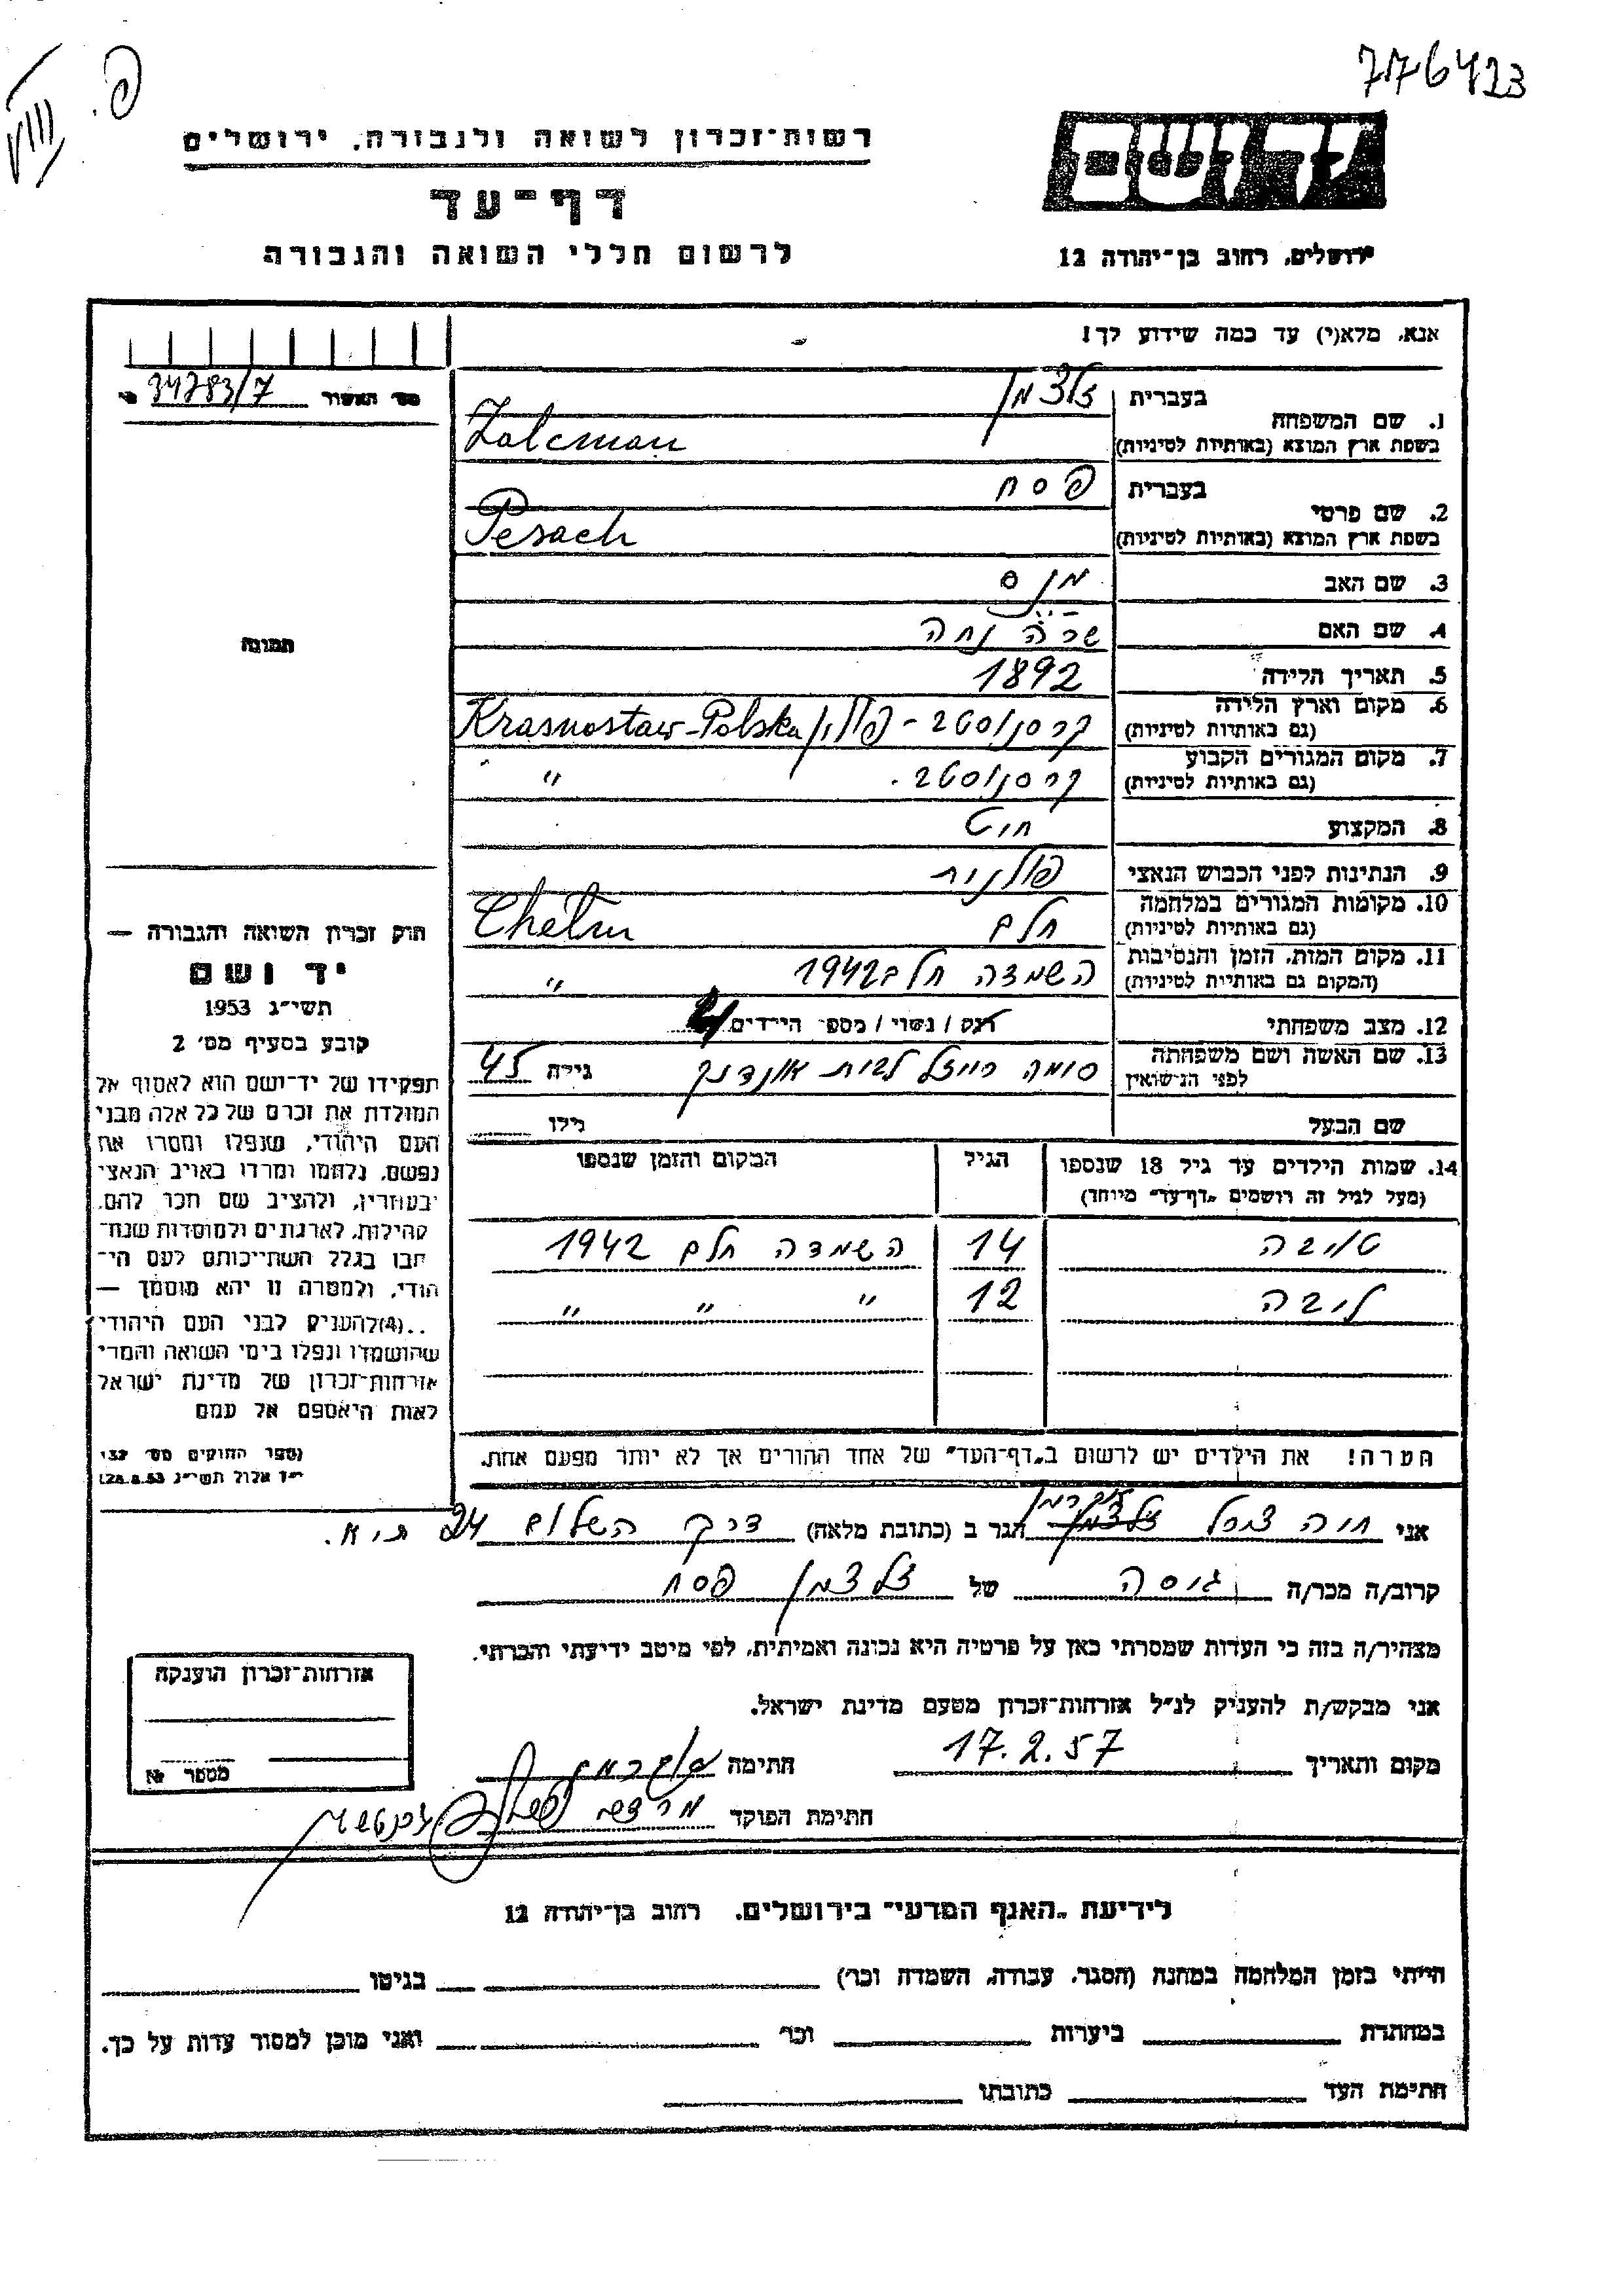 776423
פ.
רשות־זכרון לשואה ולגבורה, ירושלים
דף־עד
לרשום חללי השואה והגבורה
ירושלים, רחוב בן־יהודה 12
אנא, מלא(י) עד כמה שידוע לך!
מס' האשור 34783/7
1. שם המשפחה
בעברית זלצמן
בשפת ארץ המוצא (באותיות לטיניות) Zalcman
2. שם פרטי
בעברית פסח
בשפת ארץ המוצא (באותיות לטיניות) Pesach
3. שם האב מנס
4. שם האם שרה נחה
5. תאריך הלידה 1892
6. מקום וארץ הלידה קרסנוסטב - פולין Krasnostaw-Polska
(גם באותיות לטיניות)
7. מקום המגורים הקבוע קרסנוסטב. "
(גם באותיות לטיניות)
8. המקצוע חיט
9. הנתינות לפני הכבוש הנאצי פולנית
10. מקומות המגורים במלחמה חלם Chelm
(גם באותיות לטיניות)
11. מקום המות, הזמן והנסיבות השמדה חלם 1942 "
(המקום גם באותיות לטיניות)
12. מצב משפחתי רווק / נשוי / מספר הילדים 2
13. שם האשה ושם משפחתה סומה רייזל לבית גילה 45
לפני הנישואין
שם הבעל גילו
14. שמות הילדים עד גיל 18 שנספו הגיל המקום והזמן שנספו
(מעל לגיל זה רושמים „דף־עד" מיוחד)
טויבה 14 השמדה חלם 1942
ליבה 12 " " "
הערה! את הילדים יש לרשום ב„דף־העד" של אחד ההורים אך לא יותר מפעם אחת.
תמונה
חוק זכרון השואה והגבורה —
יד ושם
תשי"ג 1953
קובע בסעיף מס' 2
תפקידו של יד־ושם הוא לאסוף אל
המולדת את זכרם של כל אלה מבני
העם היהודי, שנפלו ומסרו את
נפשם, נלחמו ומרדו באויב הנאצי
ובעוזריו, ולהציב שם וזכר להם,
לקהילות, לארגונים ולמוסדות שנח־
רבו בגלל השתייכותם לעם הי־
הודי, ולמטרה זו יהא מוסמך —
..(4) להעניק לבני העם היהודי
שהושמדו ונפלו בימי השואה והמרי
אזרחות־זכרון של מדינת ישראל
לאות היאספם אל עמם
(ספר החוקים מס' 132
י"ז אלול תשי"ג 28.8.53)
אני חוה צבל זלצמן הגר ב (כתובת מלאה) דרך השלום 24 ת"א.
קרוב/ה מכר/ה גיסה של זלצמן פסח
מצהיר/ה בזה כי העדות שמסרתי כאן על פרטיה היא נכונה ואמיתית, לפי מיטב ידיעתי והכרתי.
אני מבקש/ת להעניק לנ"ל אזרחות־זכרון מטעם מדינת ישראל.
מקום ותאריך 17.2.57 חתימה
חתימת הפוקד
אזרחות־זכרון הוענקה
מספר №
לידיעת „האגף המדעי" בירושלים, רחוב בן־יהודה 12
הייתי בזמן המלחמה במחנה (הסגר, עבודה, השמדה וכו') בגיטו
במחתרת ביערות וכו' ואני מוכן למסור עדות על כך.
חתימת העד כתובתו